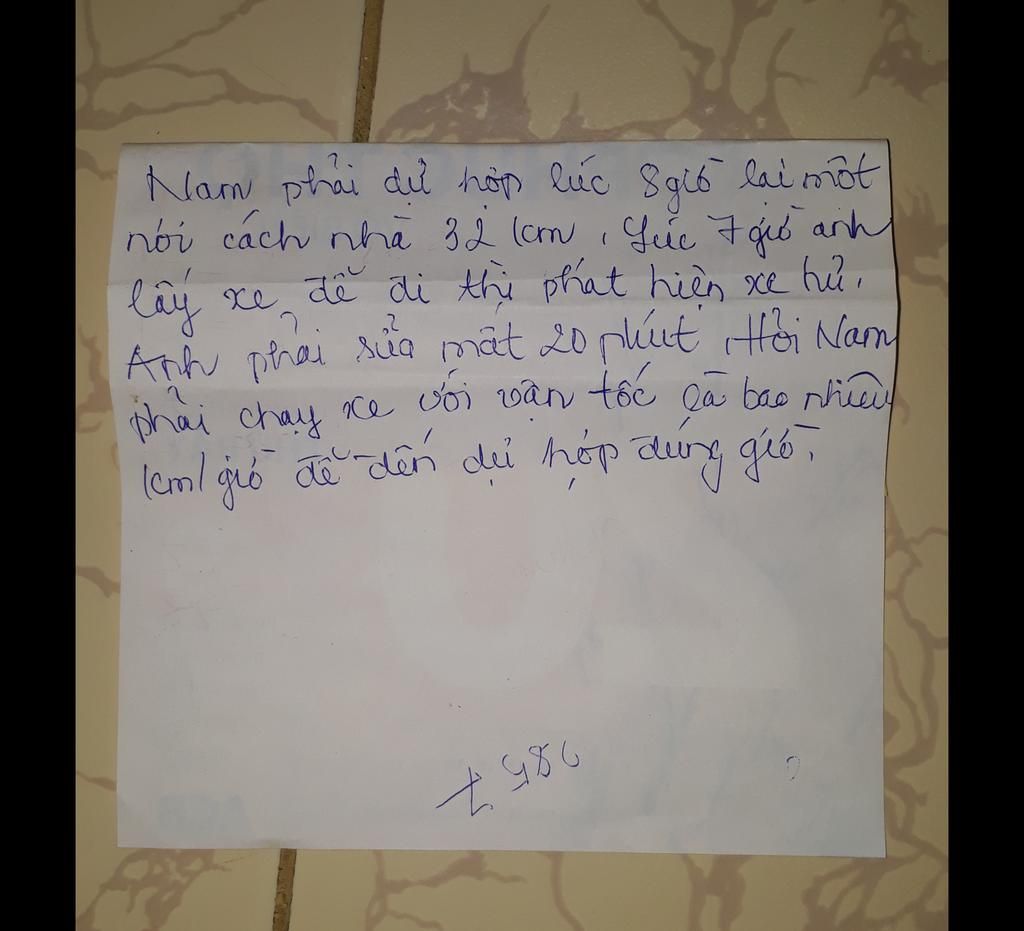 Nam phải dự họp lúc 8 giờ tại một
nơi cách nhà 32 km, Lúc 7 giờ anh
lấy xe để đi thì phát hiện xe hư.
Anh phải sửa mất 20 phút, Hỏi Nam
phải chạy xe với vận tốc là bao nhiêu
km/giờ để đến dự họp đúng giờ.